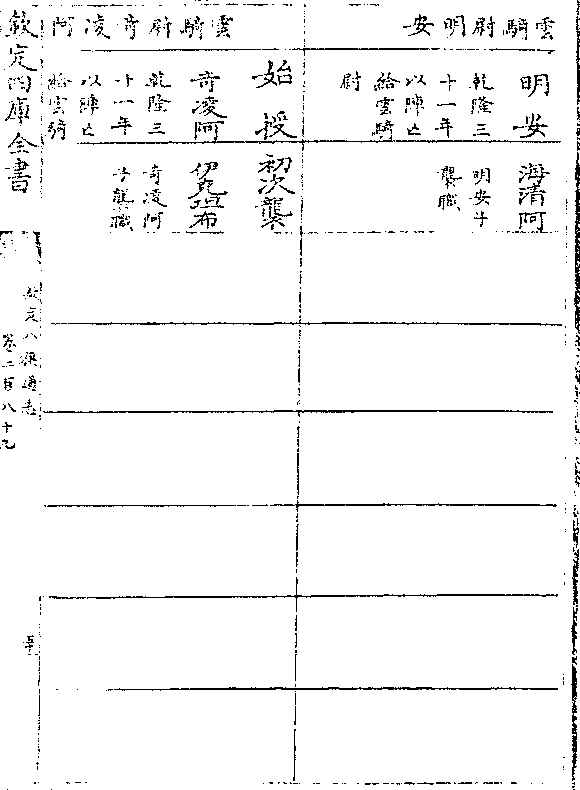 雲騎尉明安
明安
乾隆三
十一年
以陣亡
給雲騎
尉
海清阿
明安子
襲職
雲騎尉奇凌阿
始授
初次襲
奇凌阿
乾隆三
十一年
以陣亡
給雲騎
伊克坦布
奇凌阿
子襲職
欽定四庫全書
欽定八旗通志
卷二百八十九